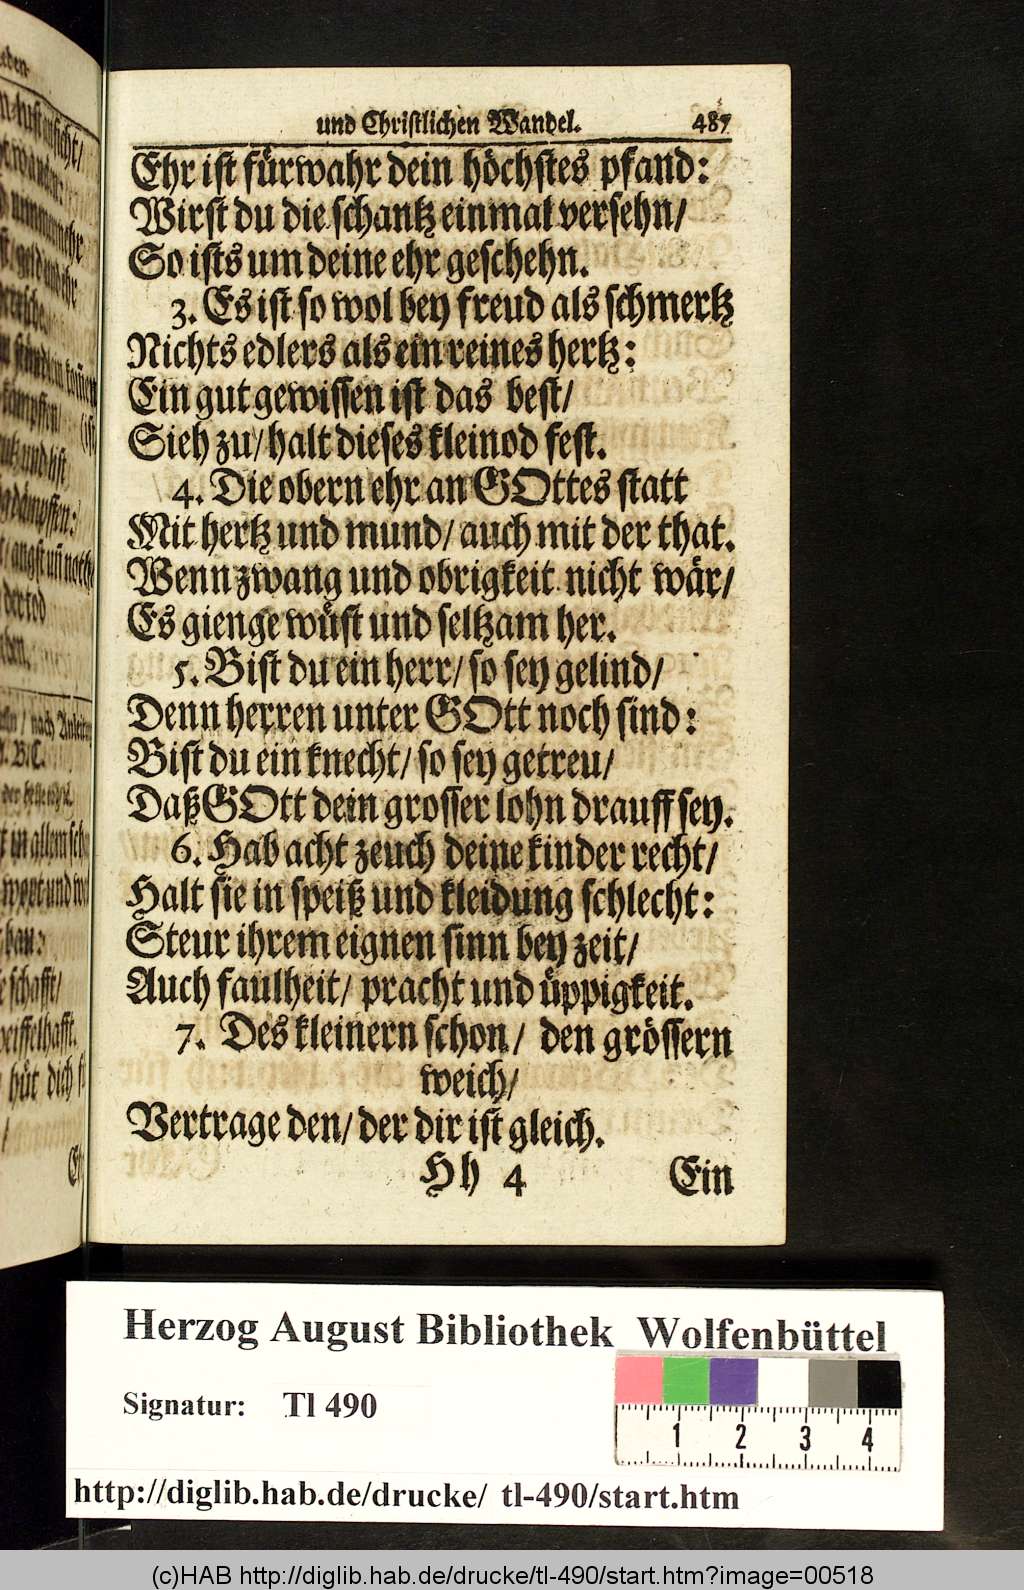 und Christlichen Wandel. 487
Ehr ist fürwahr dein höchstes pfand:
Wirst du die schantz einmal versehn/
So ists um deine ehr geschehn.
3. Es ist so wol bey freud als schmertz
Nichts edlers als ein reines hertz:
Ein gut gewissen ist das best/
Sieh zu/ halt dieses kleinod fest.
4. Die obern ehr an GOttes statt
Mit hertz und mund/ auch mit der that.
Wenn zwang und obrigkeit nicht wär/
Es gienge wüst und seltzam her.
5. Bist du ein herr/ so sey gelind/
Denn herren unter GOtt noch sind:
Bist du ein knecht/ so sey getreu/
Daß GOtt dein grosser lohn drauff sey.
6. Hab acht zeuch deine kinder recht/
Halt sie in speiß und kleidung schlecht:
Steur ihrem eignen sinn bey zeit/
Auch faulheit/ pracht und üppigkeit.
7. Des kleinern schon/ den grössern
weich/
Vertrage den/ der dir ist gleich.
Hh 4 Ein
Herzog August Bibliothek Wolfenbüttel
Signatur: Tl 490
1 2 3 4
http://diglib.hab.de/drucke/ tl-490/start.htm
(c)HAB http://diglib.hab.de/drucke/tl-490/start.htm?image=00518